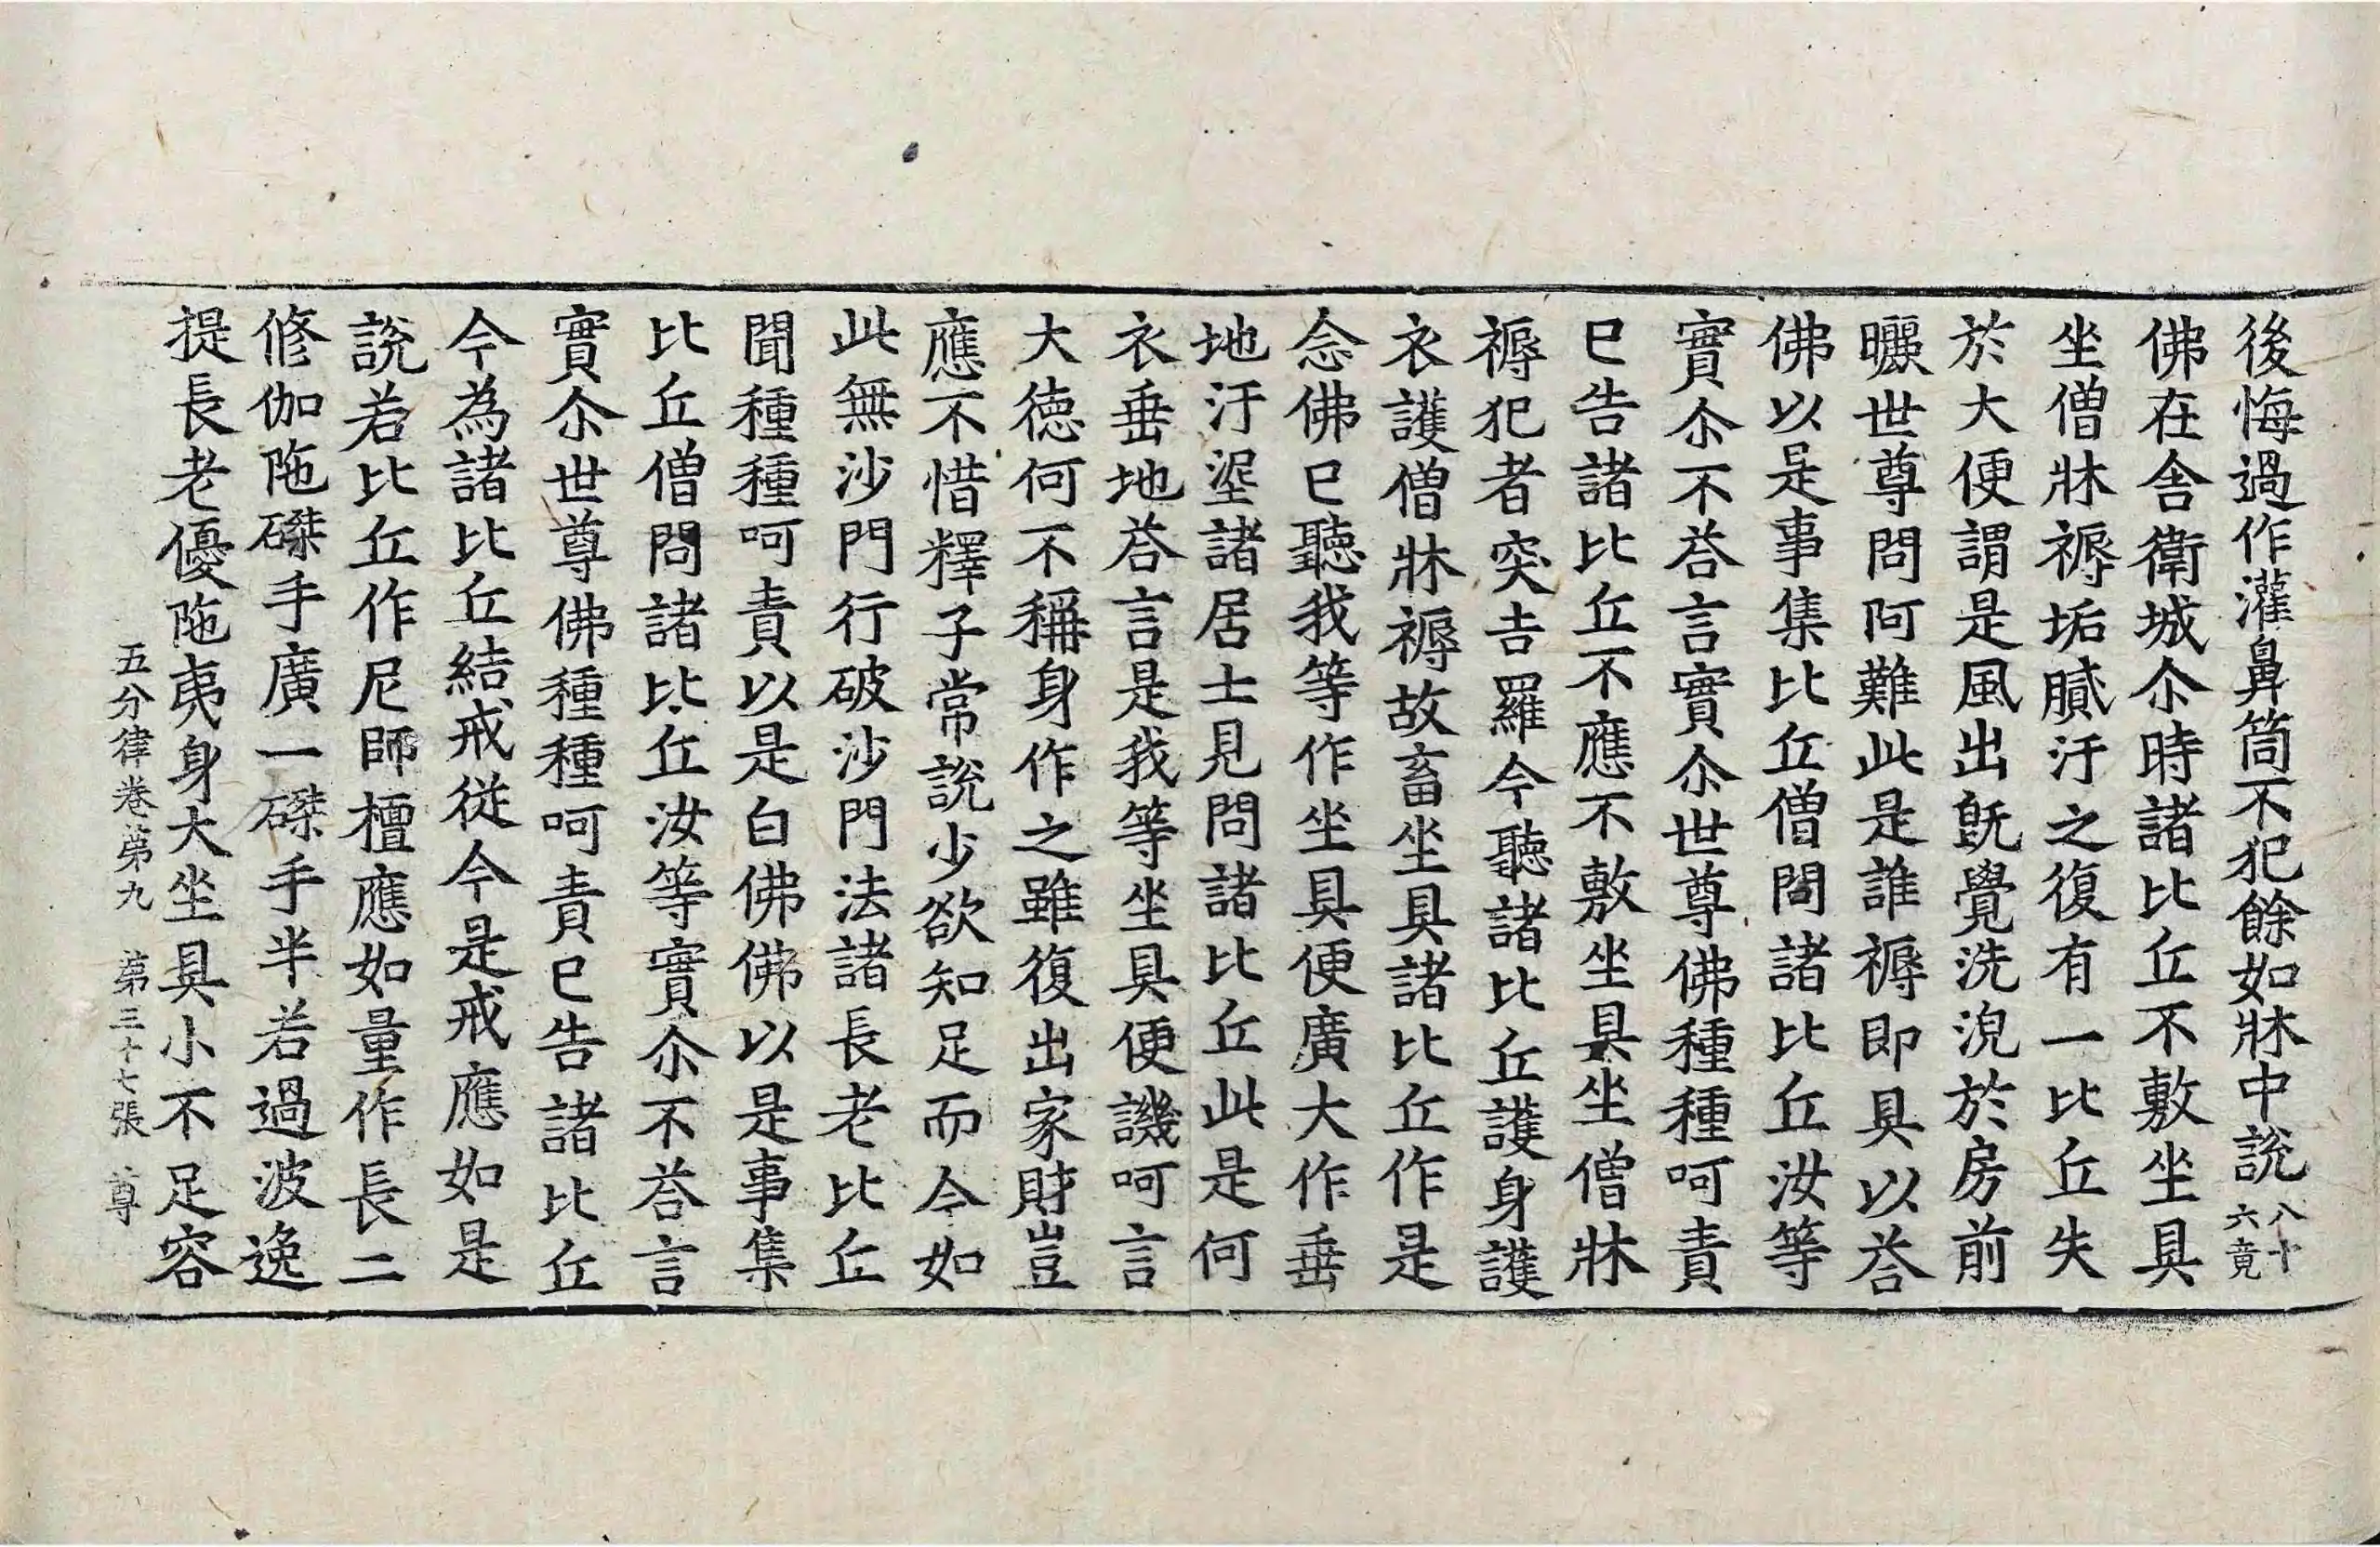 後悔過作灌鼻筒不犯餘如牀中說八十六竟
佛在舍衛城尒時諸比丘不敷坐具
坐僧牀褥垢膩汙之復有一比丘失
於大便謂是風出旣覺洗浣於房前
曬世尊問阿難此是誰褥即具以荅
佛以是事集比丘僧問諸比丘汝等
實尒不荅言實尒世尊佛種種呵責
已告諸比丘不應不敷坐具坐僧牀
褥犯者突吉羅今聽諸比丘護身護
衣護僧牀褥故畜坐具諸比丘作是
念佛已聽我等作坐具便廣大作垂
地汙埿諸居士見問諸比丘此是何
衣垂地荅言是我等坐具便譏呵言
大德何不稱身作之雖復出家財豈
應不惜釋子常說少欲知足而今如
此無沙門行破沙門法諸長老比丘
聞種種呵責以是白佛佛以是事集
比丘僧問諸比丘汝等實尒不荅言
實尒世尊佛種種呵責已告諸比丘
今為諸比丘結戒從今是戒應如是
說若比丘作尼師檀應如量作長二
修伽陁磔手廣一磔手半若過波逸
提長老優陁夷身大坐具小不足容
五分律卷第九 第三十七張 尊